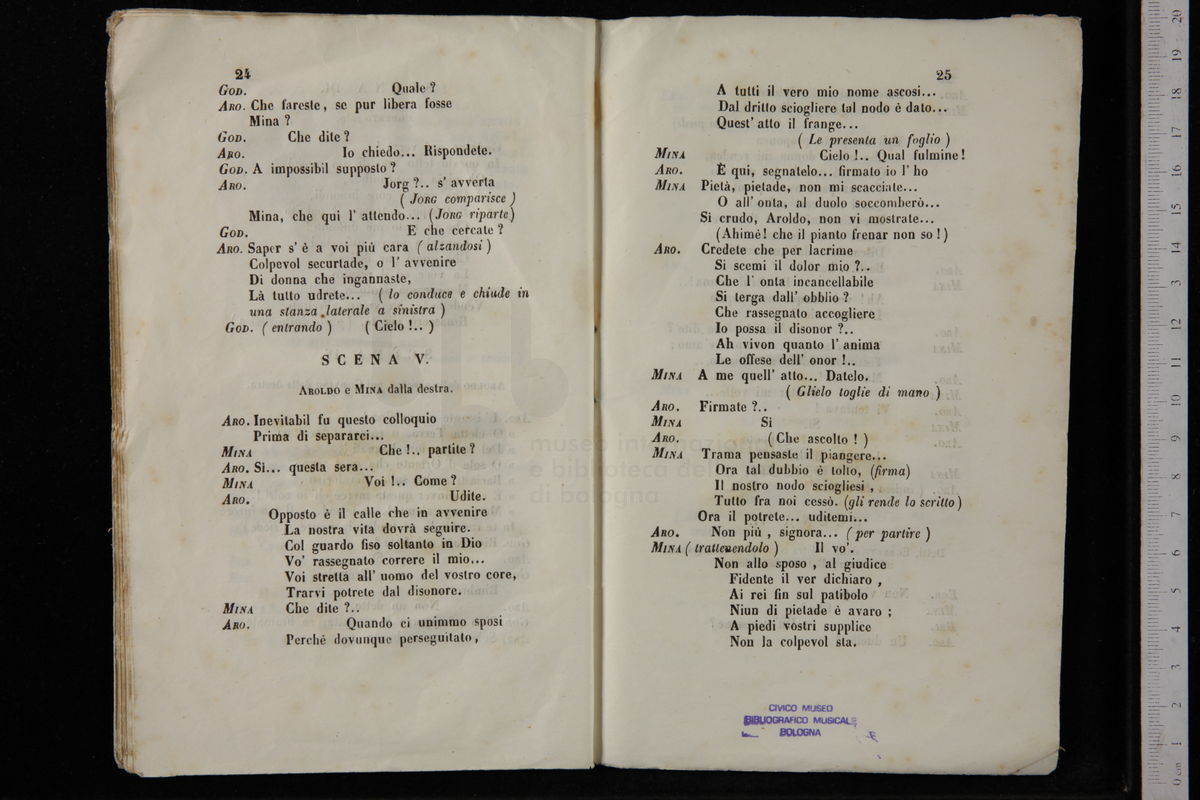 24
GOD. Quale ?
ARO. Che fareste, se pur libera fosse
Mina ?
GOD. Che dite ?
ARO. Io chiedo... Rispondete.
GOD. A impossibil supposto ?
ARO. Jorg ?.. s' avverta
( JORG comparisce )
Mina, che qui l' attendo... (JORG riparte)
GOD. E che cercate ?
ARO. Saper s' è a voi più cara ( alzandosi )
Colpevol securtade, o l' avvenire
Di donna che ingannaste,
Là tutto udrete... ( lo conduce e chiude in
una stanza laterale a sinistra )
GOD. ( entrando ) ( Cielo !.. )
SCENA V.
AROLDO e MINA dalla destra.
ARO. Inevitabil fu questo colloquio
Prima di separarci...
MINA Che !.. partite ?
ARO. Si... questa sera...
MINA Voi !.. Come ?
ARO. Udite.
Opposto è il calle che in avvenire
La nostra vita dovrà seguire.
Col guardo fiso soltanto in Dio
Vo' rassegnato correre il mio...
Voi stretta all' uomo del vostro core,
Trarvi potrete dal disonore.
MINA Che dite ?..
ARO. Quando ci unimmo sposi
Perché dovunque perseguitato,
25
A tutti il vero mio nome ascosi...
Dal dritto sciogliere tal nodo è dato...
Quest' atto il frange...
( Le presenta un foglio )
MINA Cielo !.. Qual fulmine!
ARO. È qui, segnatelo... firmato io l' ho
MINA Pietà, pietade, non mi scacciate...
O all' onta, al duolo soccomberò...
Si crudo, Aroldo, non vi mostrate...
(Ahimè! che il pianto frenar non so !)
ARO. Credete che per lacrime
Si scemi il dolor mio ?..
Che l' onta incancellabile
Si terga dall' obblio ?
Che rassegnato accogliere
Io possa il disonor ?..
Ah vivon quanto l' anima
Le offese dell' onor !..
MINA A me quell' atto... Datelo.
( Glielo toglie di mano )
ARO. Firmate ?..
MINA Si
ARO. ( Che ascolto ! )
MINA Trama pensaste il piangere...
Ora tal dubbio è tolto, (firma)
Il nostro nodo sciogliesi ,
Tutto fra noi cessò. (gli rende lo scritto)
Ora il potrete... uditemi...
ARO. Non più , signora... ( per partire )
MINA ( trattenendolo ) Il vo'.
Non allo sposo , al giudice
Fidente il ver dichiaro ,
Ai rei fin sul patibolo
Niun di pietade è avaro ;
A piedi vostri supplice
Non la colpevol sta.
CIVICO MUSEO
BIBLIOGRAFICO MUSICALE
BOLOGNA
museo internazionale
e biblioteca della
di bologna